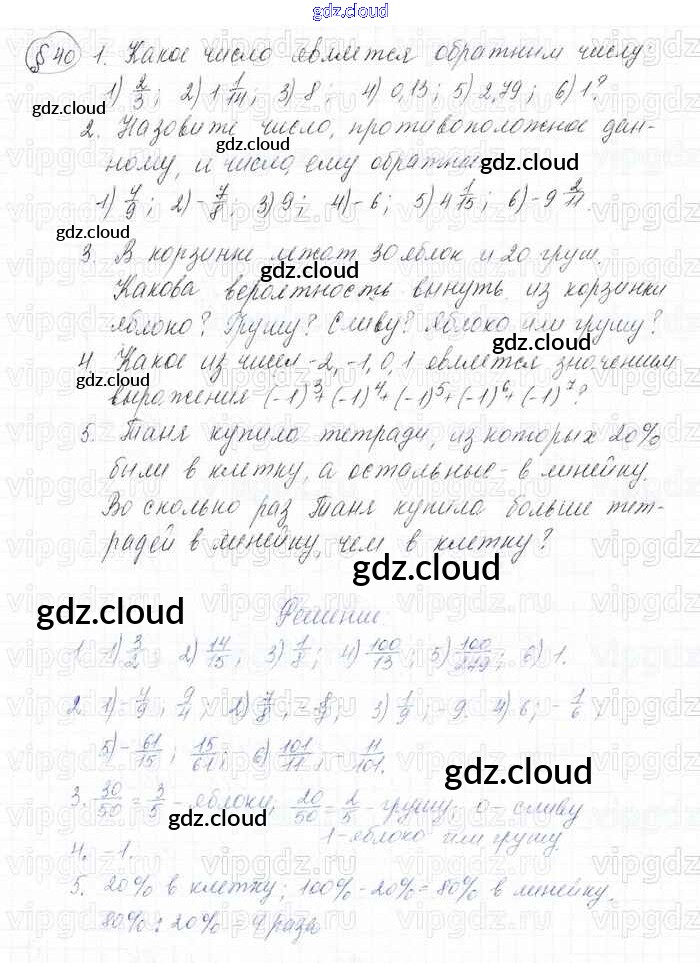 gdz.cloud
§40 1. Какое число является обратним числу:
1) 2/3; 2) 1 1/14; 3) 8; 4) 0,13; 5) 2,79; 6) 1?
gdz.cloud
2. Назовите число, противоположное дан-
gdz.cloud
ному, и число, ему обратное
gdz.cloud
1) 4/9; 2) -7/8; 3) 9; 4) -6; 5) 4 1/15; 6) -9 2/11.
gdz.cloud
3. В корзинке лежат 30 яблок и 20 груш.
gdz.cloud
Какова вероятность вынуть из корзинки
яблоко? Грушу? Сливу? Яблоко или грушу?
gdz.cloud
4. Какое из чисел -2, -1, 0, 1 является значением
gdz.cloud
выражения (-1)³+(-1)⁴+(-1)⁵+(-1)⁶+(-1)⁷?
5. Таня купила тетради, из которых 20%
были в клетку, а остальные - в линейку.
Во сколько раз Таня купила больше тет-
радей в линейку, чем в клетку?
gdz.cloud
gdz.cloud
Решение
1. 1) 3/2; 2) 14/15; 3) 1/8; 4) 100/13; 5) 100/279; 6) 1.
2. 1) -4/9; 9/4; 2) 7/8; -8/7; 3) 1/9; -9. 4) 6; -1/6;
5) -61/15; 15/61; 6) 101/11; -11/101.
gdz.cloud
3. 30/50 = 3/5 - яблоки, 20/50 = 2/5 - грушу; 0 - сливу
gdz.cloud
1 - яблоко или грушу
4. -1.
5. 20% в клетку; 100% - 20% = 80% в линейку.
80% : 20% = 4 раза